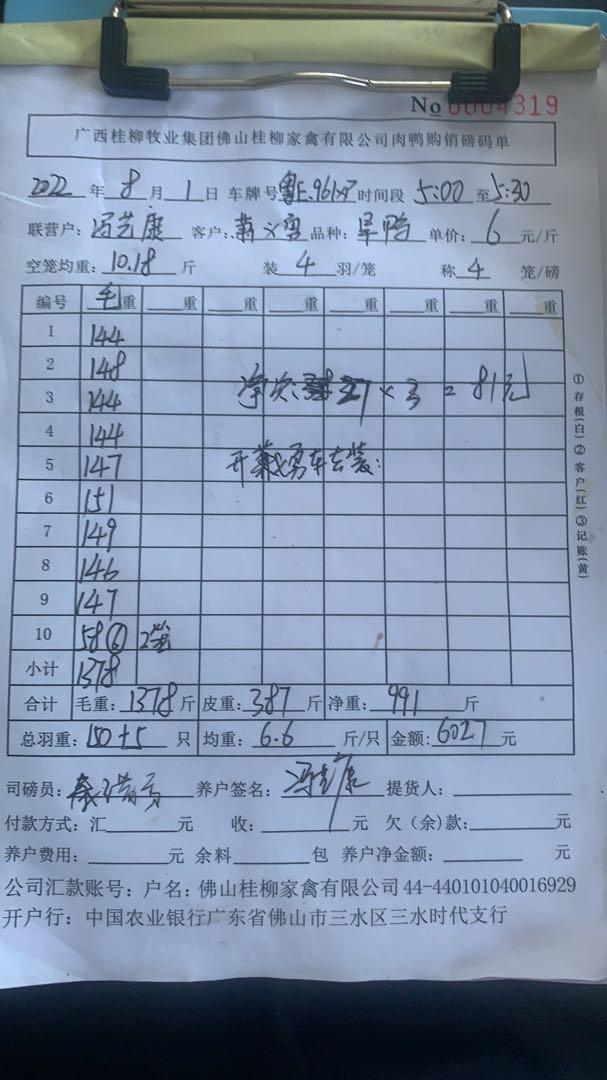 No 0004319
广西桂柳牧业集团佛山桂柳家禽有限公司肉鸭购销磅码单
2022 年 8 月 1 日 车牌号 粤E. 时间段 5:00 至 5:30
联营户: 客户: 品种: 旱鸭 单价: 6 元/斤
空笼均重: 10.18 斤 装 4 羽/笼 称 4 笼/磅
编号 毛重 重 重 重 重 重 重
1 144
2 148
3 144 净欠 27×3=81元
4 144
5 147 车去装:
6 151
7 149
8 146
9 147
10 58 ⑥ 2笼
小计 1378
合计 毛重: 1378 斤 皮重: 387 斤 净重: 991 斤
总羽重: 150+5 只 均重: 6.6 斤/只 金额: 6027 元
司磅员: 养户签名: 提货人:
付款方式: 汇 元 收: 元 欠(余)款: 元
养户费用: 元 余料 包 养户净金额: 元
公司汇款账号: 户名: 佛山桂柳家禽有限公司 44-440101040016929
开户行: 中国农业银行广东省佛山市三水区三水时代支行
①存根(白)②客户(红)③记账(黄)